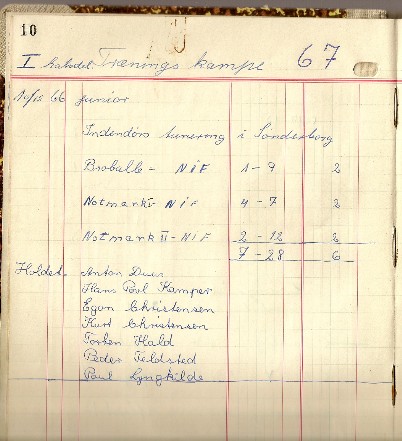 10
I halvdel. Trænings kampe 67
10/12 66 Junior
Indendörs turnering i Sönderborg
Broballe - NIF 1-9 2
Notmark I - NIF 4-7 2
Notmark II - NIF 2-12 2
7-28 6
Holdet. Anton Duus
Hans Povl Kamper
Egon Christensen
Kurt Christensen
Torben Hald
Peder Feldsted
Paul Lyngkilde